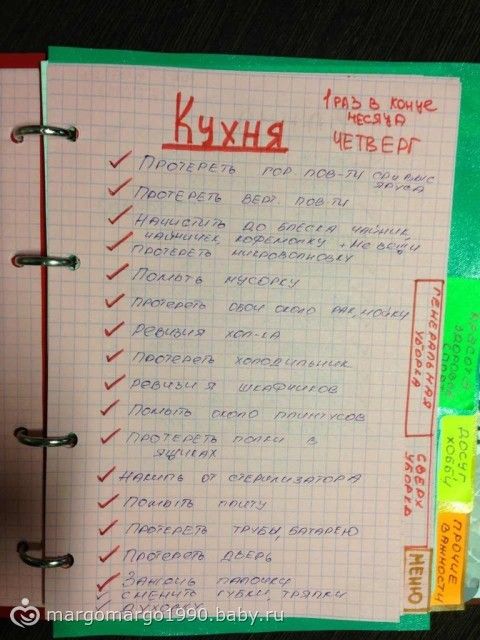 1 РАЗ В КОНЦЕ
МЕСЯЦА
ЧЕТВЕРГ
КУХНЯ
ПРОТЕРЕТЬ ГОР. ПОВ-ТИ
ЯРУСА
ПРОТЕРЕТЬ ВЕРТ. ПОВ-ТИ
НАЧИСТИТЬ ДО БЛЕСКА ЧАЙНИК,
ЧАЙНИЧЕК, КОФЕМОЛКУ +
ПРОТЕРЕТЬ МИКРОВОЛНОВКУ
ПОМЫТЬ МУСОРКУ
ПРОТЕРЕТЬ ОБОИ ОКОЛО РАК, МОЙКУ
РЕВИЗИЯ ХОЛ-КА
ПРОТЕРЕТЬ ХОЛОДИЛЬНИК
РЕВИЗИЯ ШКАФЧИКОВ
ПОМЫТЬ ОКОЛО ПЛИНТУСОВ
ПРОТЕРЕТЬ ПОЛКИ В
ЯЩИКАХ
НАКИПЬ ОТ СТЕРИЛИЗАТОРА
ПОМЫТЬ ПЛИТУ
ПРОТЕРЕТЬ ТРУБЫ, БАТАРЕЮ
ПРОТЕРЕТЬ ДВЕРЬ
ЗАЖЕЧЬ ПАЛОЧКУ
СМЕНИТЬ ГУБКИ, ТРЯПКИ
ДУХОВКА
ГЕНЕРАЛЬНАЯ
УБОРКА
СВЕРХ
УБОРКА
МЕНЮ
КРАСОТА
ЗДОРОВЬЕ
СПОРТ
ДОСУГ
ХОББИ
ПРОЧИЕ
ВАЖНОСТИ
margomargo1990.baby.ru